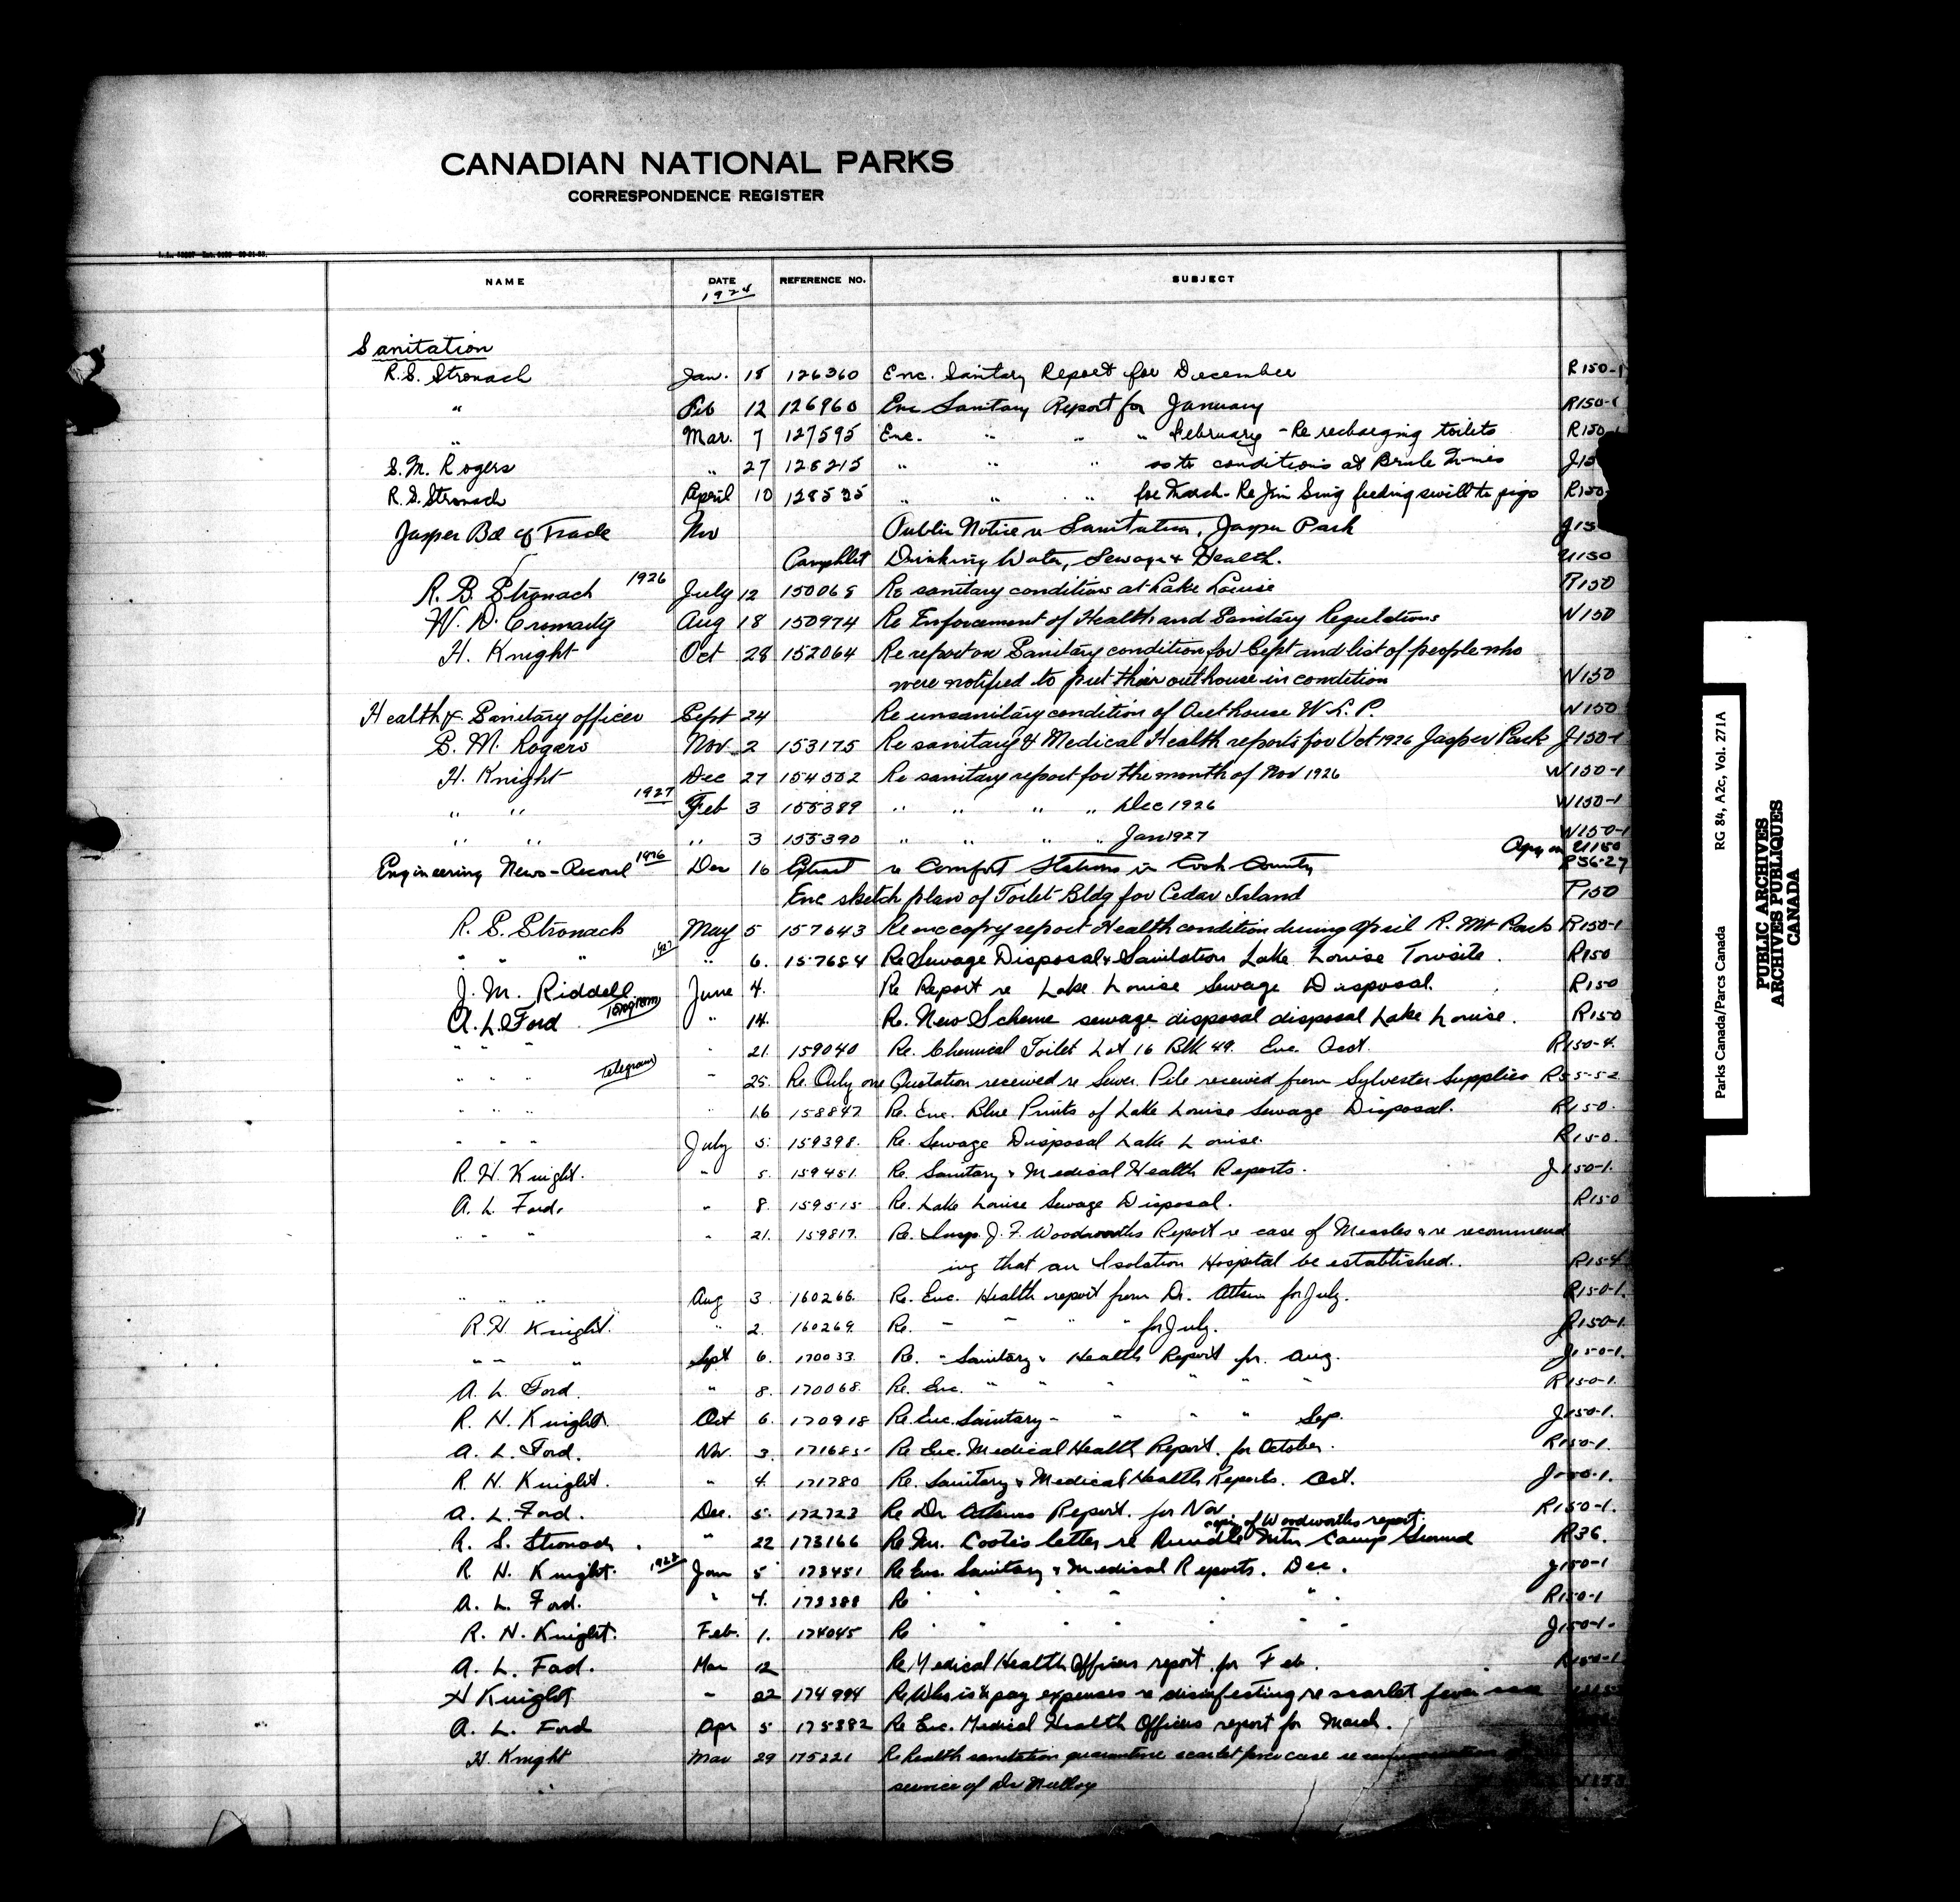 CANADIAN NATIONAL PARKS
CORRESPONDENCE REGISTER
NAME DATE REFERENCE NO. SUBJECT
1924
Sanitation
R.S. Stronach Jan. 15 126360 Enc. Sanitary Report for December R150-1
" Feb 12 126960 Enc Sanitary Report for January R150-1
" Mar. 7 127595 Enc. " " " February - Re recharging toilets R150-
S.M. Rogers " 27 128215 " " " as to conditions at Brule Mines J15
R.S. Stronach April 10 128525 " " " for March - Re Jim Sing feeding swill to pigs R150-
Jasper Bd of Trade Nov Public Notice re Sanitation, Jasper Park J15
Pamphlet Drinking Water, Sewage & Health. U150
R. S. Stronach 1926 July 12 150065 Re sanitary conditions at Lake Louise R150
W. D. Cromarty Aug 18 150974 Re Enforcement of Health and Sanitary Regulations W150
H. Knight Oct 28 152064 Re report on Sanitary condition for Sept and list of people who
were notified to put their outhouse in condition W150
Health & Sanitary officer Sept 24 Re unsanitary condition of Outhouse W. L. P. W150
S. M. Rogers Nov 2 153175 Re sanitary & Medical Health reports for Oct 1926 Jasper Park J150-1
H. Knight Dec 27 154502 Re sanitary report for the month of Nov 1926 W150-1
" " 1927 Feb 3 155389 " " " " Dec 1926 W150-1
" " " 3 155390 " " " " Jan 1927 W150-1
Engineering News-Record 1926 Dec 16 Extract re Comfort Stations in Cook County U150
P56-27
Enc sketch plan of Toilet Bldg for Cedar Island P150
R. S. Stronach May 5 157643 Re enc copy report Health condition during April R. Mt Park R150-1
" " " 1927 " 6. 157684 Re Sewage Disposal & Sanitation Lake Louise Towsite. R150
J. M. Riddell June 4. Re Report re Lake Louise Sewage Disposal. R150
A. L. Ford Telegram " 14. Re. New Scheme sewage disposal disposal Lake Louise. R150
" " " " 21. 159040 Re. Chemical Toilet Lot 16 Blk 49. Enc. R150-4.
" " " Telegram " 25. Re. Only one Quotation received re Sewer Pile received from Sylvester Supplies R55-52
" " " " 16 158847 Re. Enc. Blue Prints of Lake Louise Sewage Disposal. R150.
" " " July 5. 159398. Re. Sewage Disposal Lake Louise. R150.
R. H. Knight. " 5. 159451. Re. Sanitary & Medical Health Reports. J150-1.
A. L. Ford. " 8. 159515 Re. Lake Louise Sewage Disposal. R150
" " " " 21. 159817. Re. Insp. J. F. Woodworths Report re case of Measles & re recommend
ing that an Isolation Hospital be established. R15-4
" " " Aug 3. 160266. Re. Enc. Health report from Dr. Atkin for July. R150-1.
R. H. Knight. " 2. 160269. Re. " " " " for July. J150-1.
" " " Sept 6. 170033. Re. " Sanitary & Health Report for Aug. J150-1.
A. L. Ford. " 8. 170068. Re. Enc. " " " " " R150-1.
R. H. Knight. Oct 6. 170918 Re. Enc. Sanitary " " " " Sep. J150-1.
A. L. Ford. Nov. 3. 171685 Re Enc. Medical Health Report. for October. R150-1.
R. H. Knight. " 4. 171780 Re. Sanitary & Medical Health Reports. Oct. J150-1.
A. L. Ford. Dec. 5. 172723 Re Dr Atkins Report. for Nov R150-1.
copies of Woodworths report.
R. S. Stronach. " 22 173166 Re Mr. Cootes letter re Rundle Mtn Camp Ground R36.
R. H. Knight. 1928 Jan 5 173451 Re Enc. Sanitary & Medical Reports. Dec. J150-1
A. L. Ford. " 4. 173388 Re " " " " " " R150-1
R. H. Knight. Feb. 1. 174045 Re " " " " " " J150-1.
A. L. Ford. Mar 12 Re Medical Health Officers report for Feb. R150-1
H Knight " 22 174994 Re Who is to pay expenses re disinfesting re scarlet fever
A. L. Ford Apr 5 175382 Re Enc. Medical Health Officers report for March.
H. Knight Mar 29 175221 Re health sanitation quarantine scarlet fever case re
service of Dr Mulloy
Parks Canada/Parcs Canada RG 84, A2c, Vol. 271A
PUBLIC ARCHIVES
ARCHIVES PUBLIQUES
CANADA